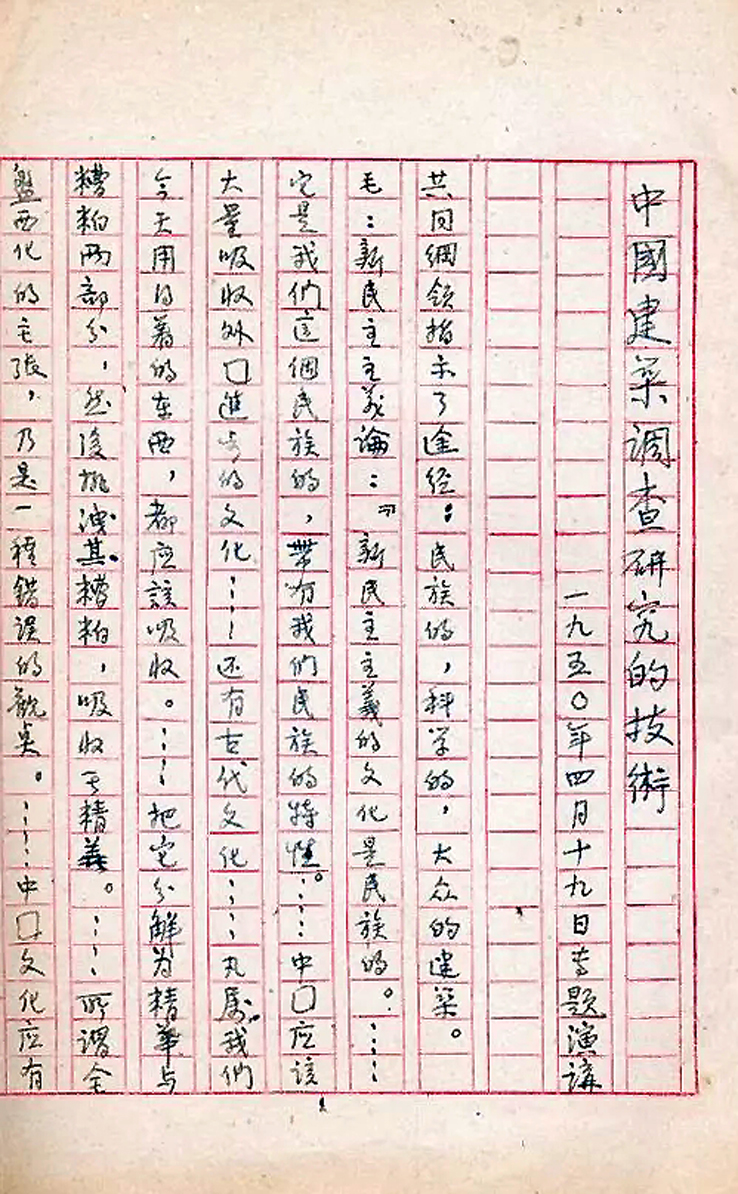 中國建築调查研究的技術
一九五〇年四月十九日专题演講
共同綱领指示了途经：民族的，科学的，大众的建築。
毛：新民主主义論：『新民主主義的文化是民族的。……
它是我們這個民族的，带有我們民族的特性。……中囗应该
大量吸收外囗進步的文化……还有古代文化……凡属我們
今天用得着的东西，都应該吸收。……把它分解为精華与
糟粕两部分，然後排洩其糟粕，吸收其精義。……所谓全
盤西化的主張，乃是一種錯误的観点。……中囗文化应有